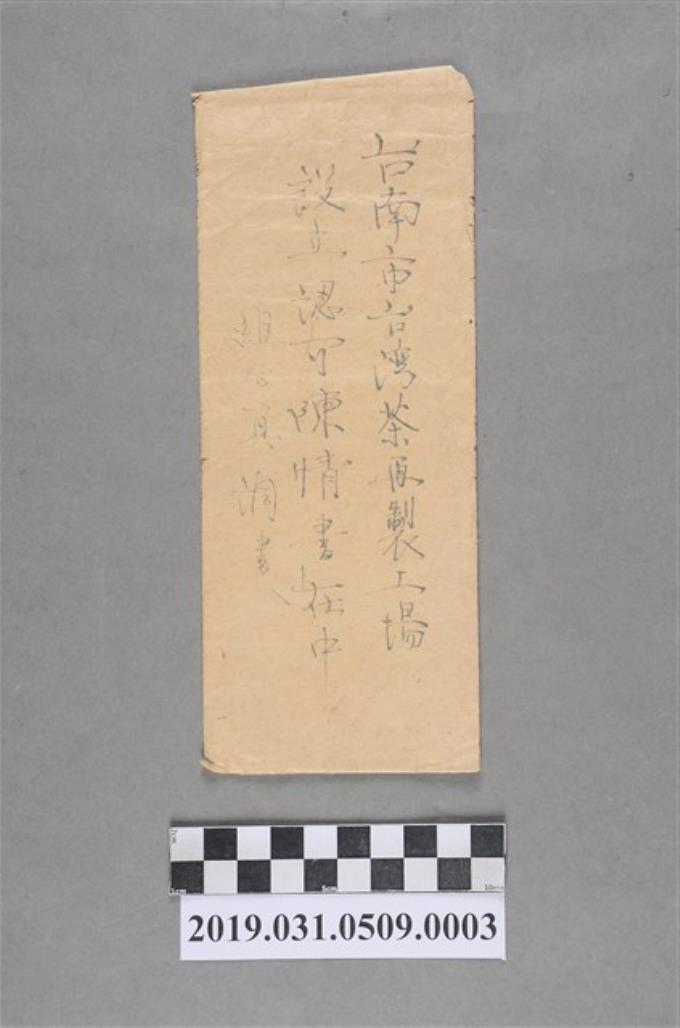 台南市台湾茶再製工場
設立認可陳情書在中
組合員調書
1cm 5cm 10cm
2019.031.0509.0003